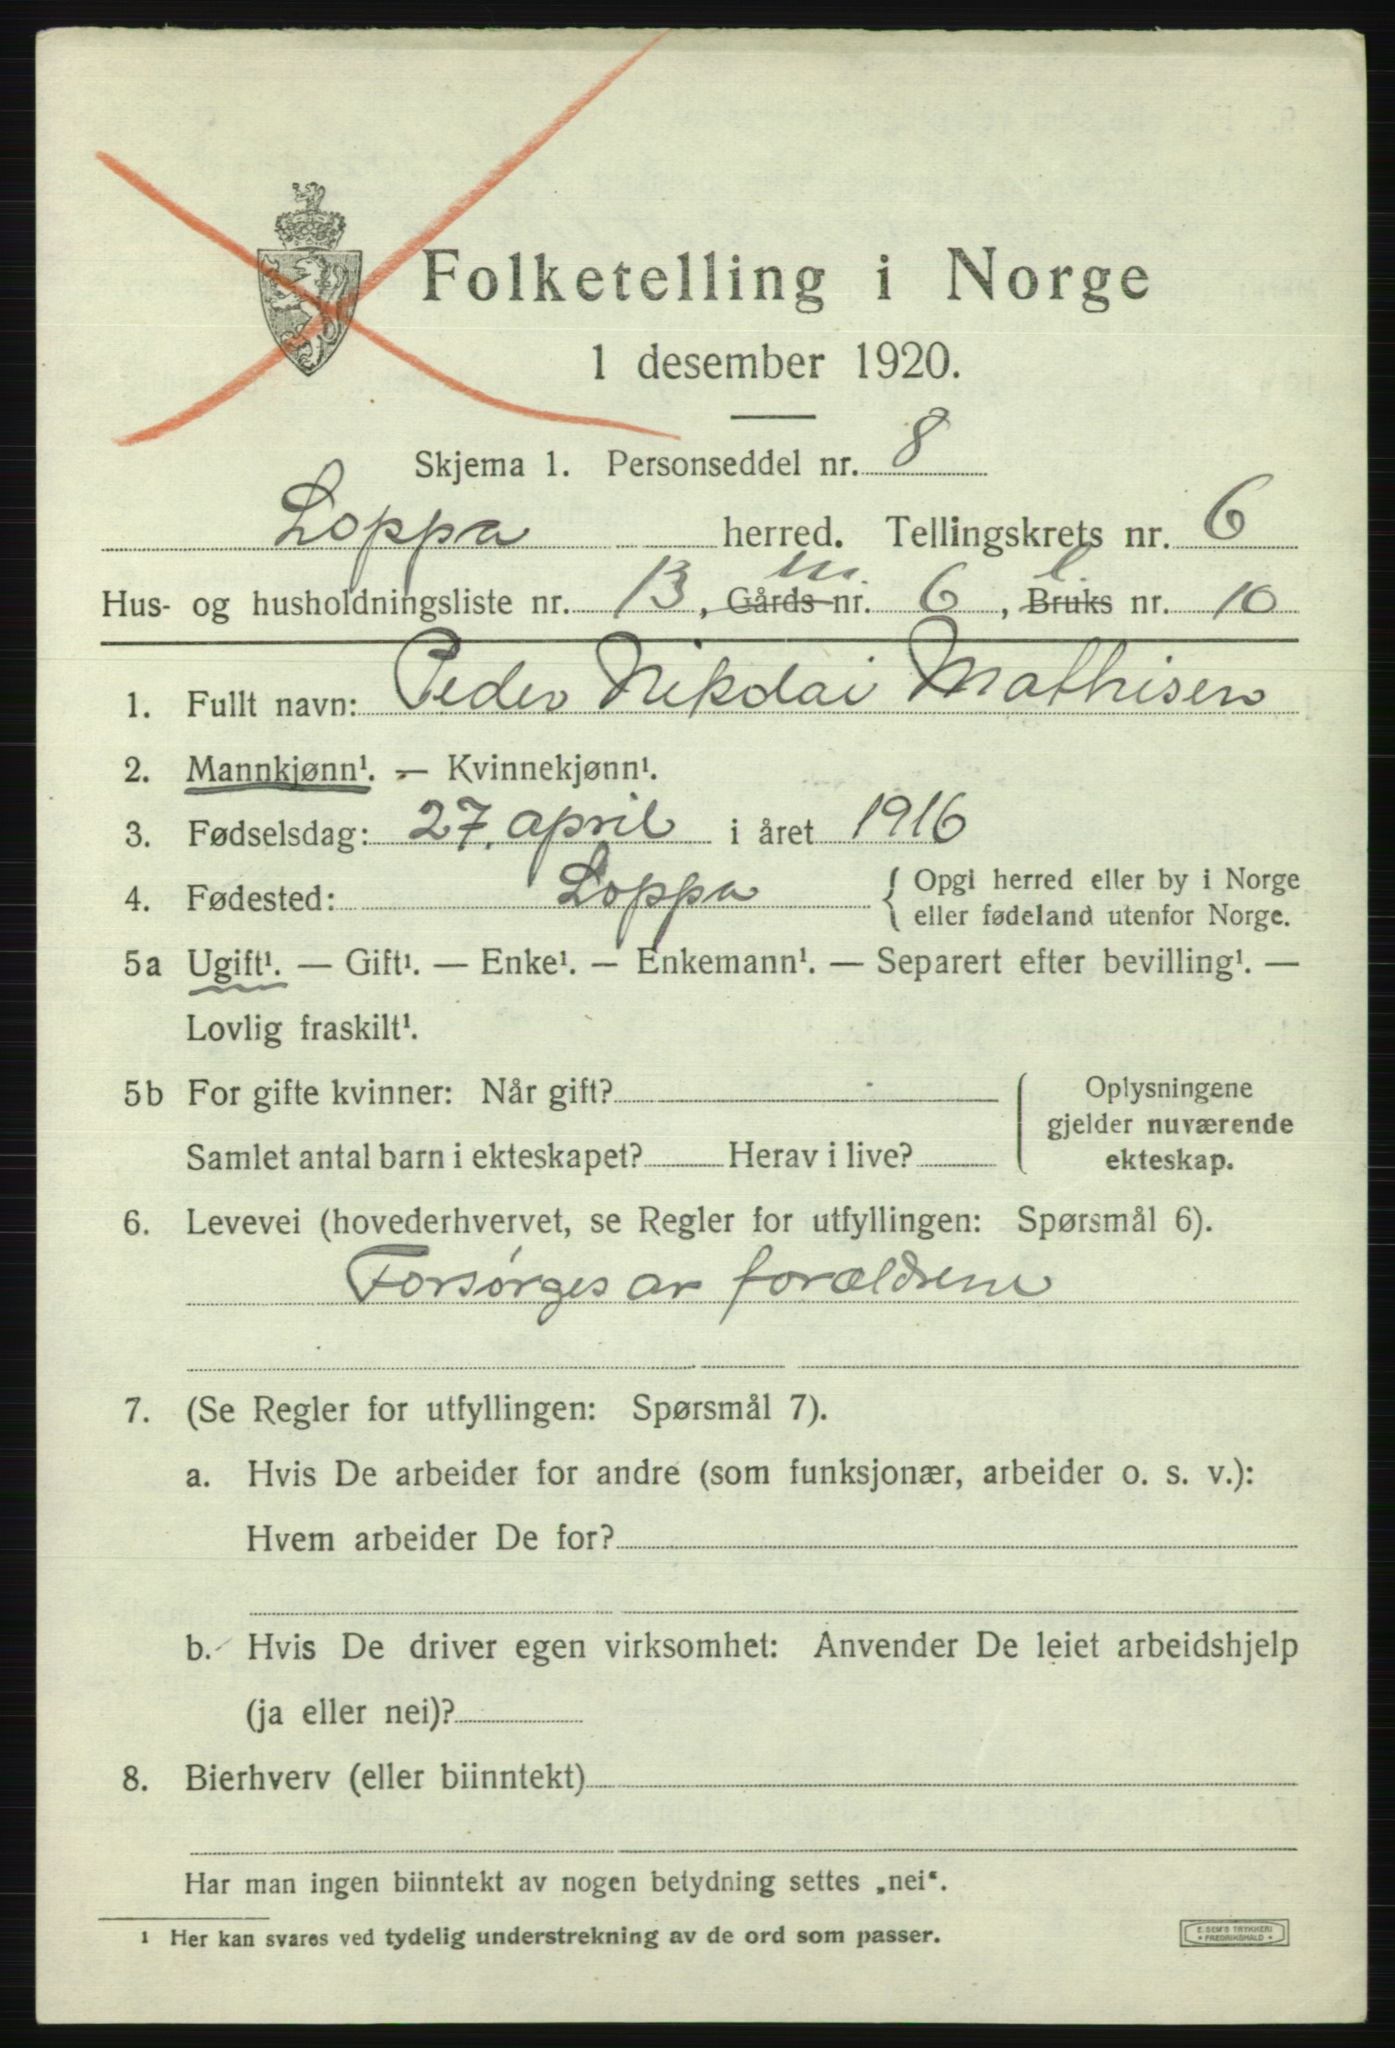 Folketelling i Norge
1 desember 1920.
Skjema 1. Personseddel nr. 8
Loppa herred. Tellingskrets nr. 6
m. l.
Hus- og husholdningsliste nr. 13, Gårds nr. 6, Bruks nr. 10
1. Fullt navn: Peder Nikolai Mathisen
2. Mannkjønn¹. — Kvinnekjønn¹.
3. Fødselsdag: 27. april i året 1916
4. Fødested: Loppa { Opgi herred eller by i Norge
eller fødeland utenfor Norge.
5a Ugift¹. — Gift¹. — Enke¹. — Enkemann¹. — Separert efter bevilling¹. —
Lovlig fraskilt¹.
5b For gifte kvinner: Når gift? Oplysningene
gjelder nuværende
Samlet antal barn i ekteskapet? Herav i live? ekteskap.
6. Levevei (hovederhvervet, se Regler for utfyllingen: Spørsmål 6).
Forsørges av forældrene
7. (Se Regler for utfyllingen: Spørsmål 7).
a. Hvis De arbeider for andre (som funksjonær, arbeider o. s. v.):
Hvem arbeider De for?
b. Hvis De driver egen virksomhet: Anvender De leiet arbeidshjelp
(ja eller nei)?
8. Bierhverv (eller biinntekt)
Har man ingen biinntekt av nogen betydning settes „nei“.
¹ Her kan svares ved tydelig understrekning av de ord som passer.
E. SEM'S TRYKKERI
* FREDRIKSHALD *